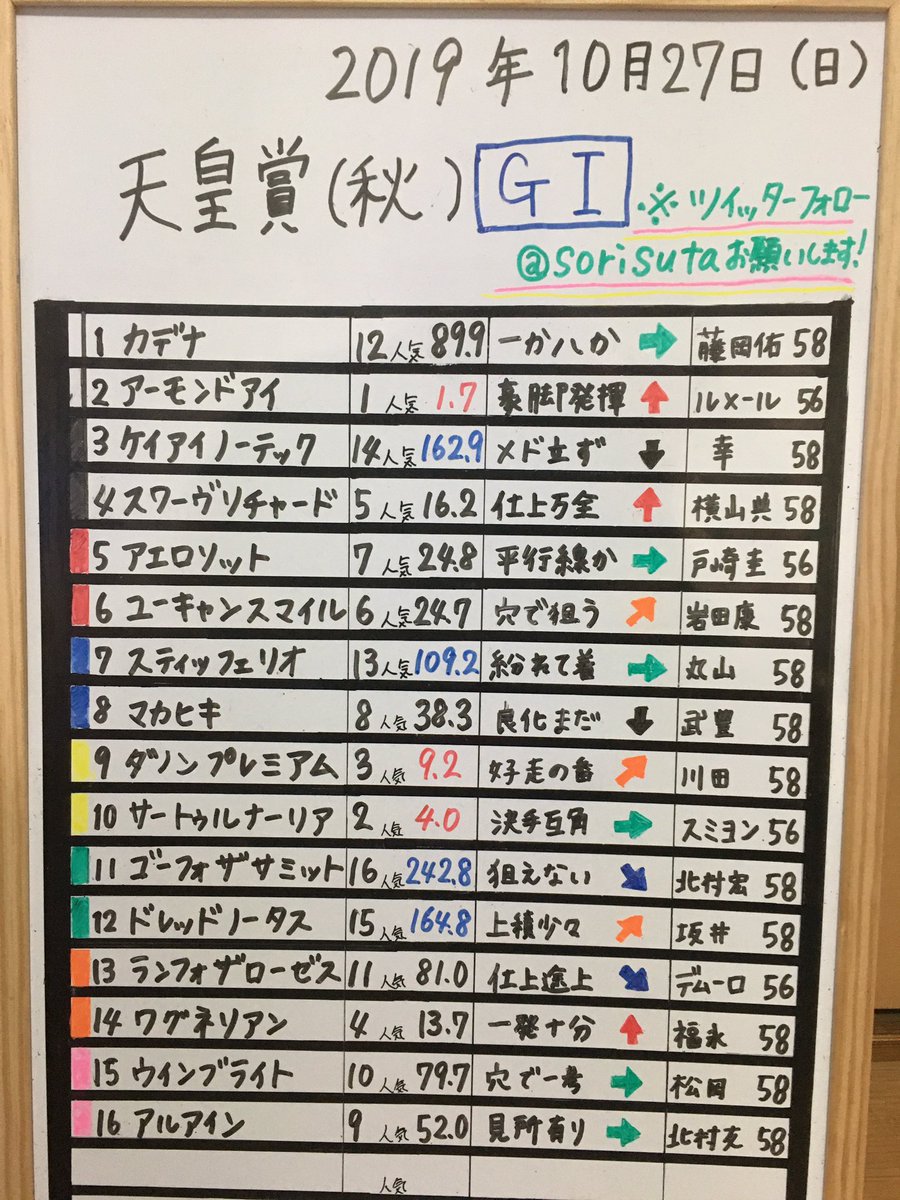 2019年10月27日(日)
天皇賞(秋) GI ※ツイッターフォロー
@sorisutaお願いします!
1 カデナ 12人気 89.9 一か八か → 藤岡佑 58
2 アーモンドアイ 1人気 1.7 豪脚発揮 ↑ ルメール 56
3 ケイアイノーテック 14人気 162.9 メド立ず ↓ 幸 58
4 スワーヴリチャード 5人気 16.2 仕上万全 ↑ 横山典 58
5 アエロソット 7人気 24.8 平行線か → 戸崎圭 56
6 ユーキャンスマイル 6人気 24.7 穴で狙う ↗ 岩田康 58
7 スティッフェリオ 13人気 109.2 紛れて着 → 丸山 58
8 マカヒキ 8人気 38.3 良化まだ ↓ 武豊 58
9 ダノンプレミアム 3人気 9.2 好走の番 ↗ 川田 58
10 サートゥルナーリア 2人気 4.0 決手互角 → スミヨン 56
11 ゴーフォザサミット 16人気 242.8 狙えない ↘ 北村宏 58
12 ドレッドノータス 15人気 164.8 上積少々 ↗ 坂井 58
13 ランフォザローゼス 11人気 81.0 仕上途上 ↘ デムーロ 56
14 ワグネリアン 4人気 13.7 一発十分 ↑ 福永 58
15 ウインブライト 10人気 79.7 穴で一考 → 松岡 58
16 アルアイン 9人気 52.0 見所有り → 北村友 58
人気